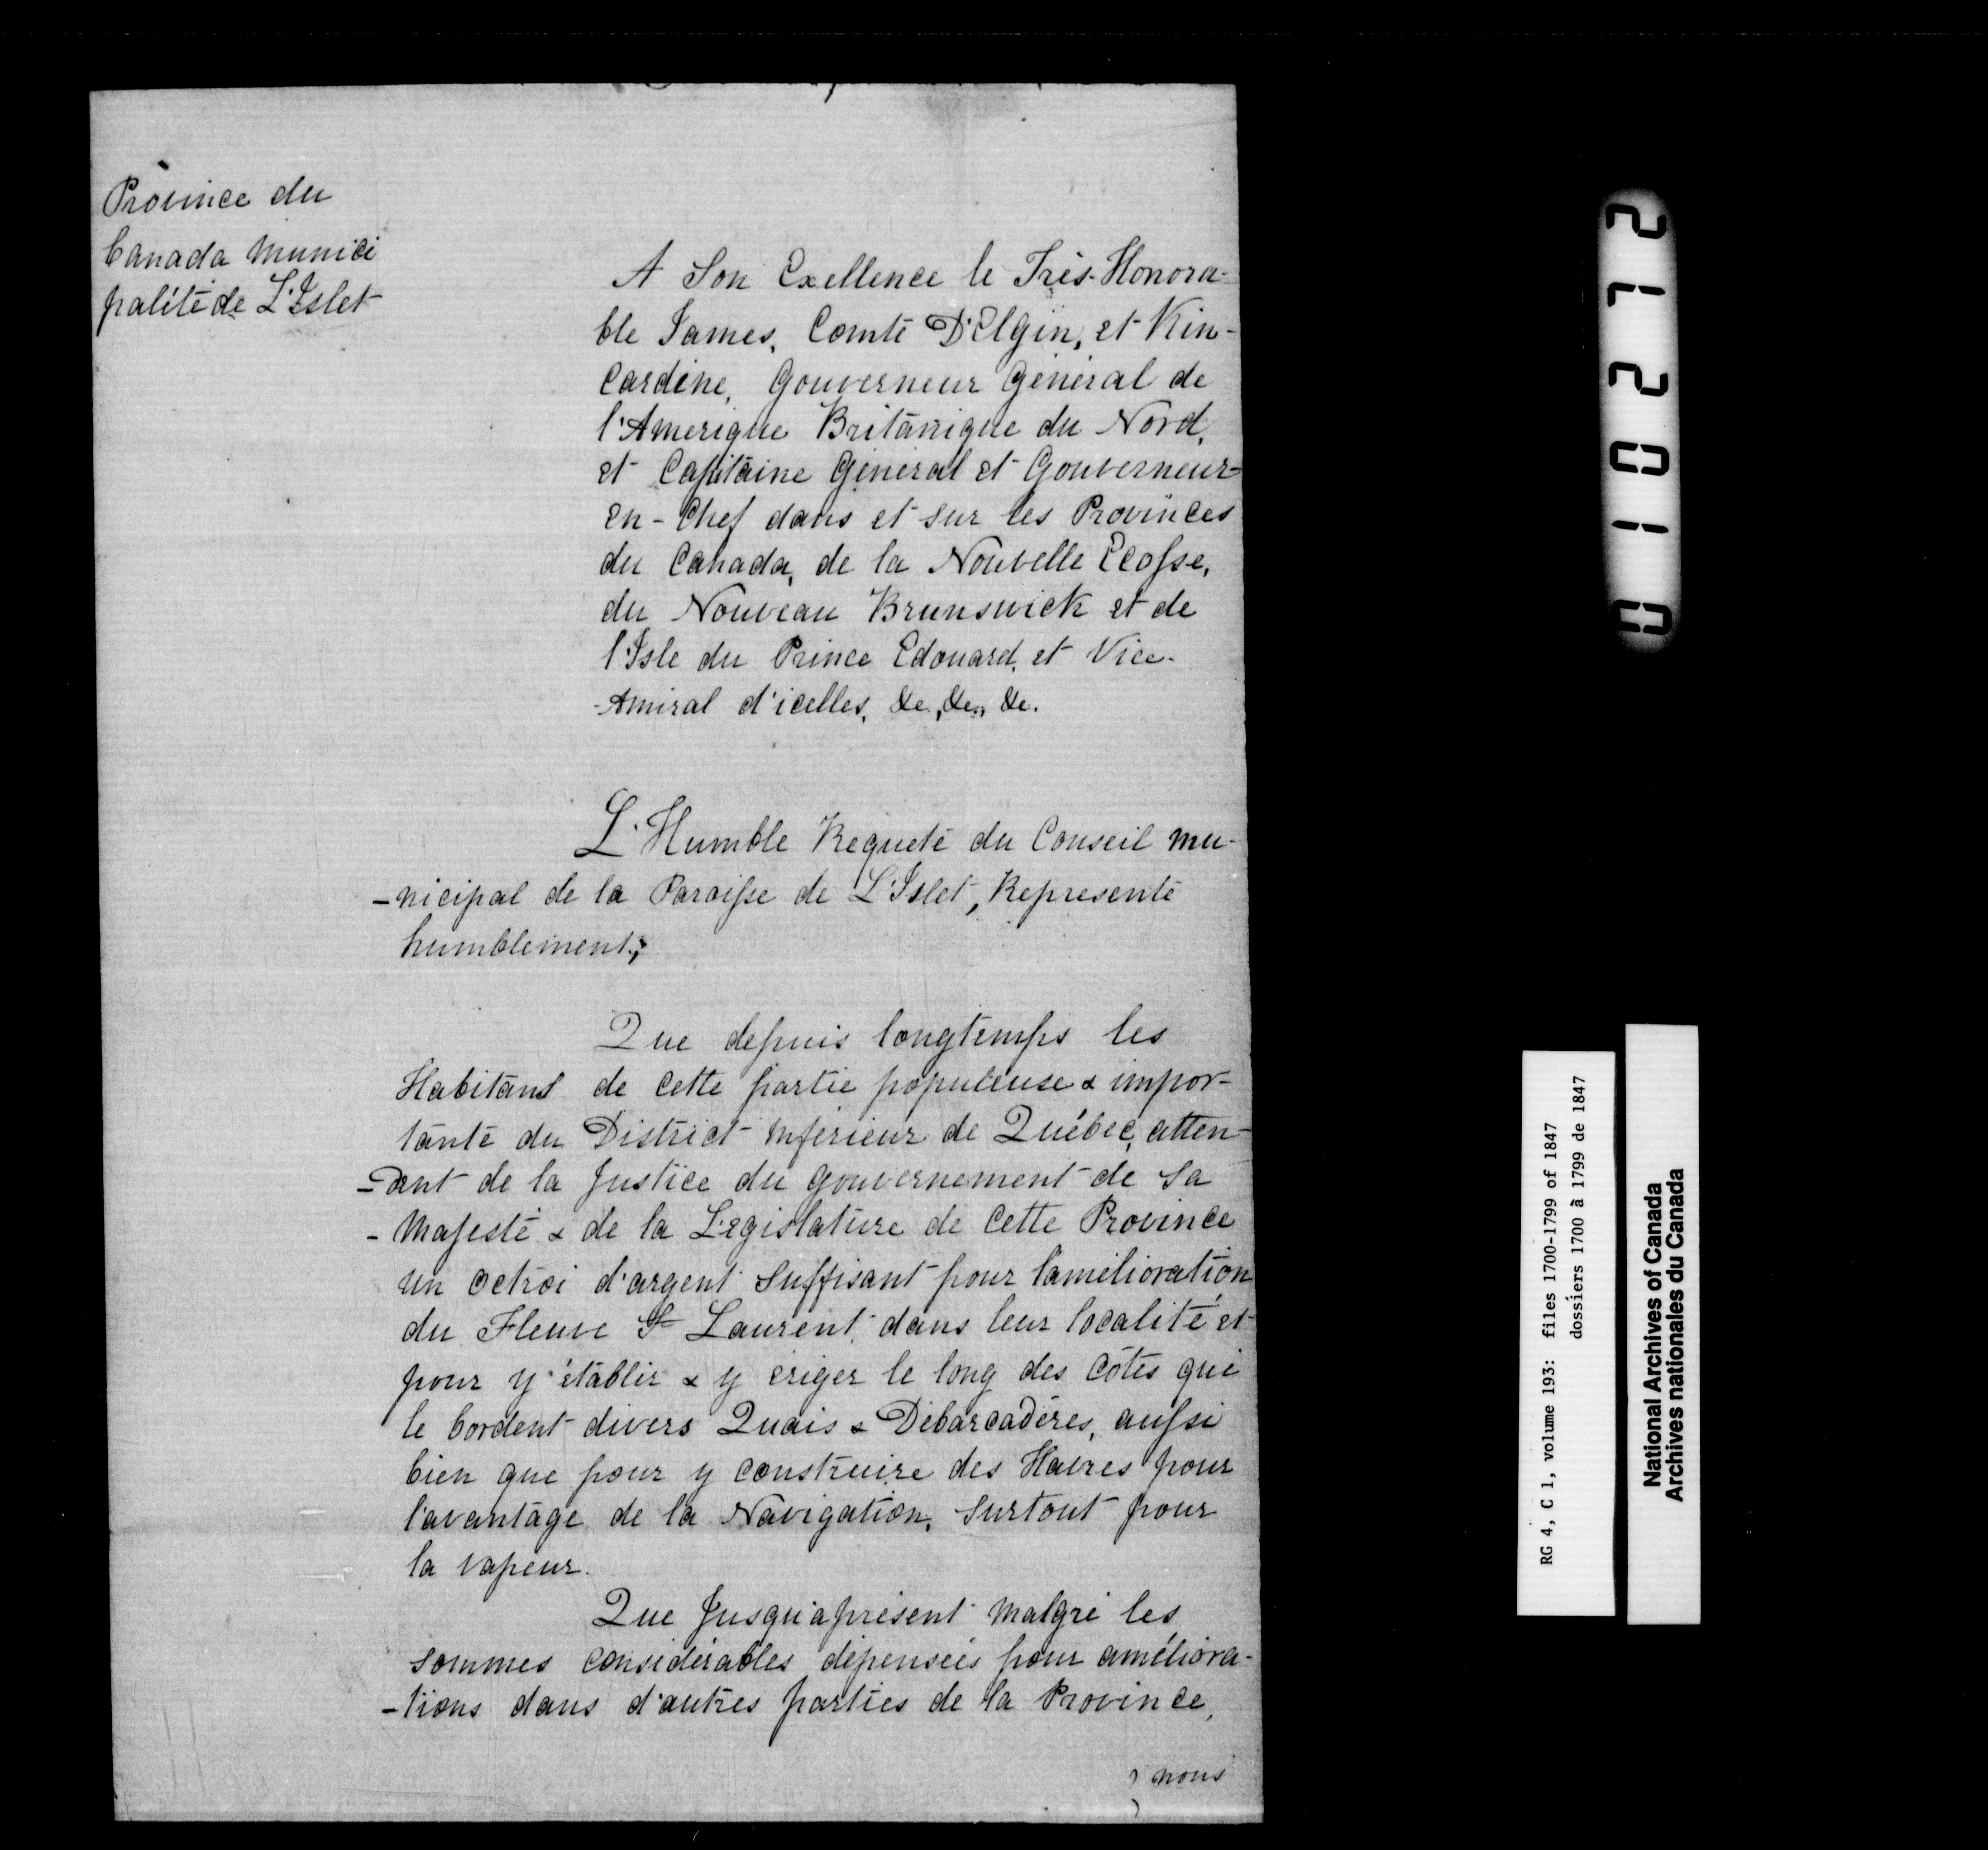 Province du
Canada Munici
palité de L'Islet
A Son Exellence le Très-Honora-
ble James, Comte D'Elgin, et Kin-
cardine, Gouverneur Général de
l'Amerique Britannique du Nord,
et Capitaine Général et Gouverneur-
en-Chef dans et sur les Provinces
du Canada, de la Nouvelle Ecosse,
du Nouveau Brunswick et de
l'Isle du Prince Edouard, et Vice-
-Amiral d'icelles, &c, &c, &c.
L'Humble Requete du Conseil mu-
-nicipal de la Paroisse de L'Islet, Represente
humblement;
Que depuis longtemps les
Habitans de cette partie populeuse & impor-
tante du District Inférieur de Québec, atten-
-dent de la Justice du gouvernement de Sa
-Majesté & de la Législature de cette Province
un octroi d'argent suffisant pour l'amélioration
du Fleuve St Laurent, dans leur localité et
pour y établir & y eriger le long des Côtes qui
le bordent divers Quais & Débarcadères, aussi
bien que pour y construire des Havres pour
l'avantage de la Navigation, surtout pour
la vapeur.
Que Jusqu'aprésent malgré les
sommes considérables dépensées pour améliora-
-tions dans d'autres parties de la Province,
nous
012012
RG 4, C 1, volume 193: files 1700-1799 of 1847
dossiers 1700 à 1799 de 1847
National Archives of Canada
Archives nationales du Canada